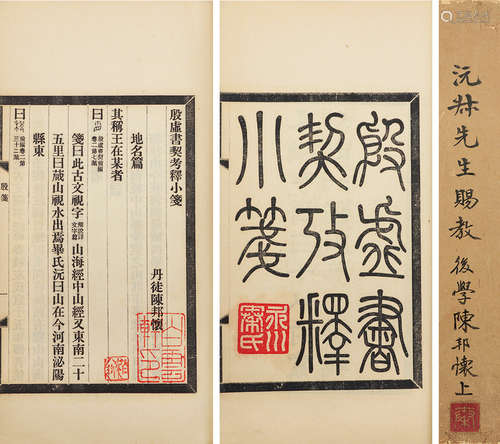 沅叔先生賜教 後學陳邦懷上
殷虛書
契攷釋
小箋
殷虛書契考釋小箋
丹徒陳邦懷
地名篇
其稱王在某者
曰 殷虛書契前編卷二第七葉
箋曰此古文視字 山海經中山經又東南二十
五里曰葴山視水出焉畢氏沅曰山在今河南泌陽
縣東
曰 前編卷二第三十二葉
殷箋